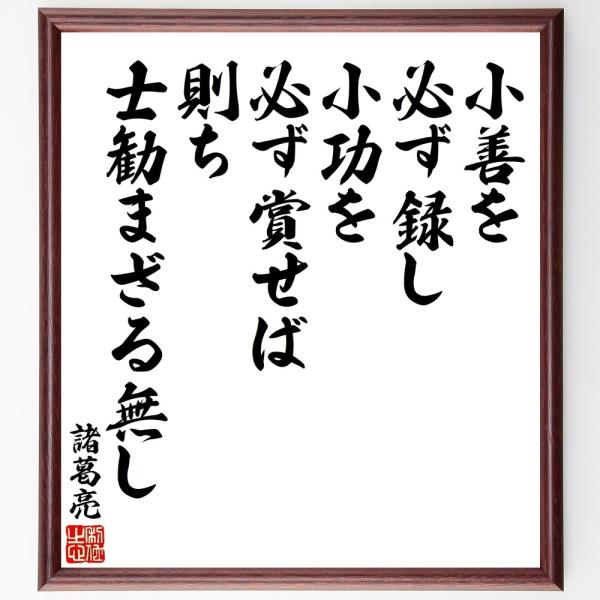 小善を
必ず録し
小功を
必ず賞せば
則ち
士勸まざる無し
諸葛亮